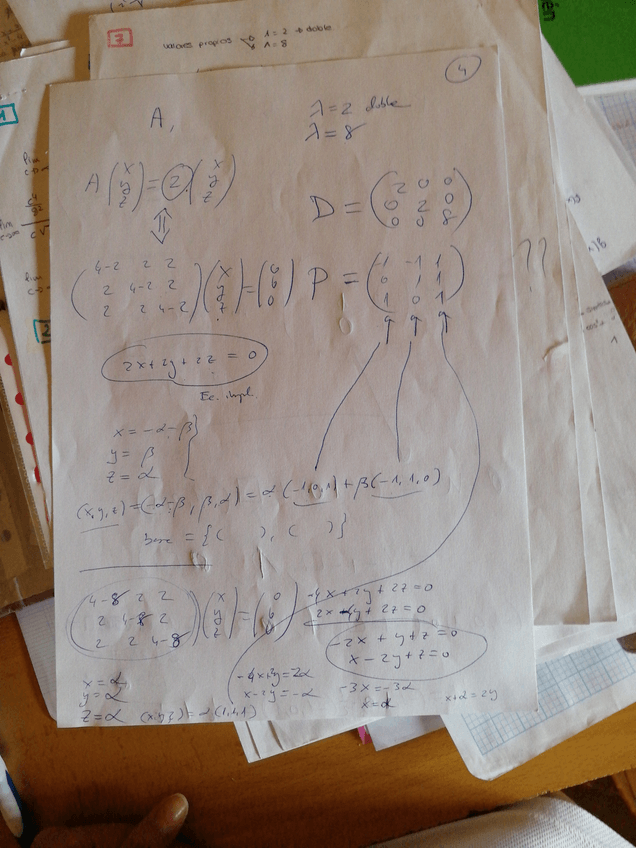 7
valores propios λ = 2 → doble
λ = 8
4
A,
λ = 2 doble
λ = 8
A (x y z) = 2 · (x y z)
⇕
D = (2 0 0
0 2 0
0 0 8)
(4-2 2 2
2 4-2 2
2 2 4-2) (x y z) = (0 0 0)
P = (1 -1 1
0 1 1
1 0 1)
??
2x+2y+2z = 0
Ec. impl.
x = -α-β
y = β
z = α
(x,y,z) = (-α-β, β, α) = α (-1,0,1) + β (-1,1,0)
base = {( ), ( )}
(4-8 2 2
2 4-8 2
2 2 4-8) (x y z) = (0 0 0)
-4x+2y+2z=0
2x-4y+2z=0
-2x+y+z=0
x-2y+z=0
x=α
y=α
z=α (x,y,z)=α(1,1,1)
-4x+2y=2α
x-2y=-α
-3x=-3α
x=α
x+α=2y